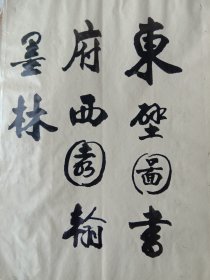 東壁圖書
府西園翰
墨林